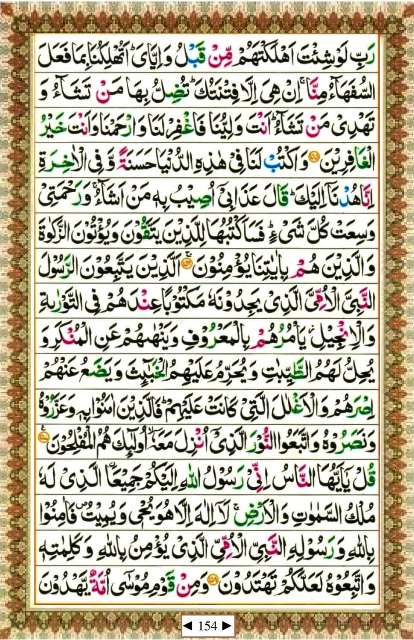 رَبِّ لَوْ شِئْتَ اَهْلَكْتَهُمْ مِّنْ قَبْلُ وَاِيَّايَ ؕ اَتُهْلِكُنَا بِمَا فَعَلَ
السُّفَهَآءُ مِنَّا ۚ اِنْ هِيَ اِلَّا فِتْنَتُكَ ؕ تُضِلُّ بِهَا مَنْ تَشَآءُ وَ
تَهْدِيْ مَنْ تَشَآءُ ؕ اَنْتَ وَلِيُّنَا فَاغْفِرْ لَنَا وَارْحَمْنَا وَاَنْتَ خَيْرُ
الْغَافِرِيْنَ ۝ وَاكْتُبْ لَنَا فِيْ هٰذِهِ الدُّنْيَا حَسَنَةً وَّ فِي الْاٰخِرَةِ
اِنَّا هُدْنَاۤ اِلَيْكَ ؕ قَالَ عَذَابِيْۤ اُصِيْبُ بِهٖ مَنْ اَشَآءُ ۚ وَ رَحْمَتِيْ
وَسِعَتْ كُلَّ شَيْءٍ ؕ فَسَاَكْتُبُهَا لِلَّذِيْنَ يَتَّقُوْنَ وَيُؤْتُوْنَ الزَّكٰوةَ
وَالَّذِيْنَ هُمْ بِاٰيٰتِنَا يُؤْمِنُوْنَ ۝ اَلَّذِيْنَ يَتَّبِعُوْنَ الرَّسُوْلَ
النَّبِيَّ الْاُمِّيَّ الَّذِيْ يَجِدُوْنَهٗ مَكْتُوْبًا عِنْدَهُمْ فِي التَّوْرٰىةِ
وَالْاِنْجِيْلِ ؗ يَاْمُرُهُمْ بِالْمَعْرُوْفِ وَيَنْهٰىهُمْ عَنِ الْمُنْكَرِ وَ
يُحِلُّ لَهُمُ الطَّيِّبٰتِ وَيُحَرِّمُ عَلَيْهِمُ الْخَبٰٓئِثَ وَيَضَعُ عَنْهُمْ
اِصْرَهُمْ وَالْاَغْلٰلَ الَّتِيْ كَانَتْ عَلَيْهِمْ ؕ فَالَّذِيْنَ اٰمَنُوْا بِهٖ وَعَزَّرُوْهُ
وَنَصَرُوْهُ وَاتَّبَعُوا النُّوْرَ الَّذِيْۤ اُنْزِلَ مَعَهٗۤ ۙ اُولٰٓئِكَ هُمُ الْمُفْلِحُوْنَ ۝
قُلْ يٰۤاَيُّهَا النَّاسُ اِنِّيْ رَسُوْلُ اللّٰهِ اِلَيْكُمْ جَمِيْعَا ۨالَّذِيْ لَهٗ
مُلْكُ السَّمٰوٰتِ وَالْاَرْضِ ۚ لَاۤ اِلٰهَ اِلَّا هُوَ يُحْيٖ وَيُمِيْتُ ۪ فَاٰمِنُوْا
بِاللّٰهِ وَرَسُوْلِهِ النَّبِيِّ الْاُمِّيِّ الَّذِيْ يُؤْمِنُ بِاللّٰهِ وَكَلِمٰتِهٖ
وَاتَّبِعُوْهُ لَعَلَّكُمْ تَهْتَدُوْنَ ۝ وَمِنْ قَوْمِ مُوْسٰۤى اُمَّةٌ يَّهْدُوْنَ
◄ 154 ►